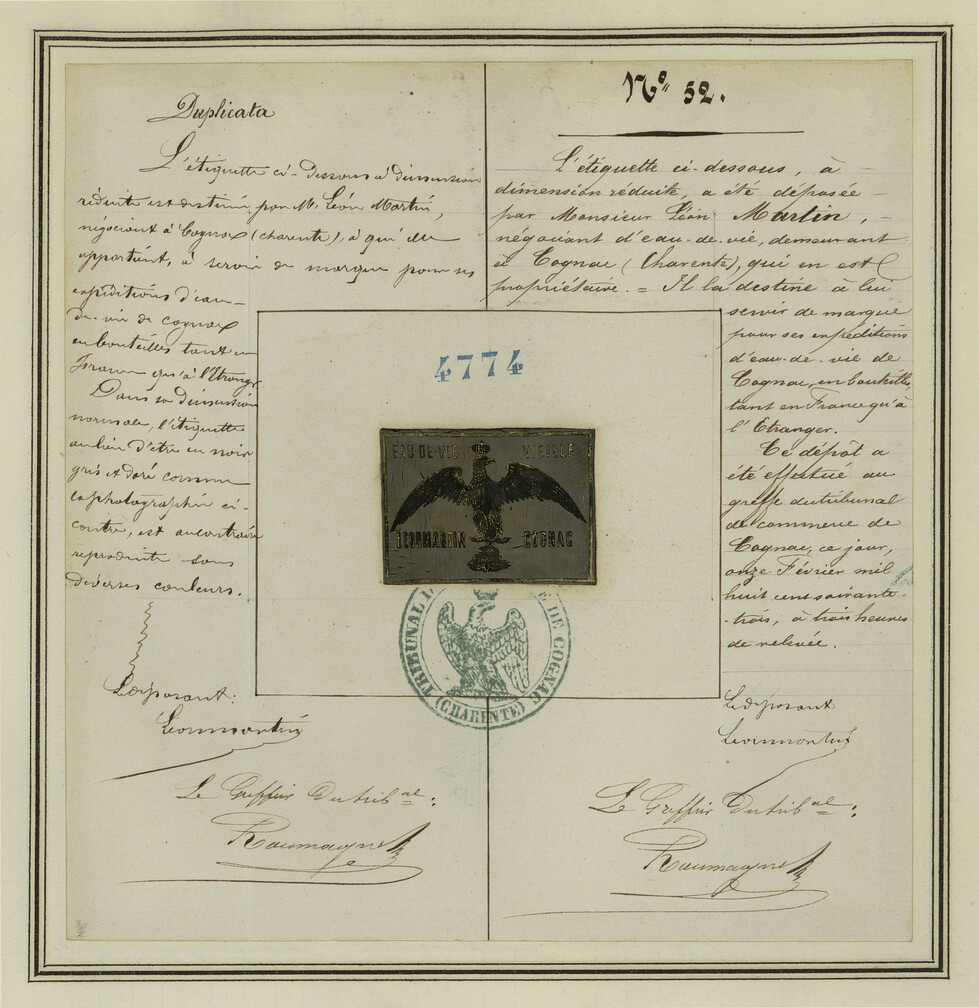 Duplicata
L'étiquette ci-dessous à dimension
réduite est destiné par M. Léon Martin,
négociant à Cognac (charente), à qui elle
appartient, à servir de marque pour ses
expéditions d'eau-
de-vie de cognac
en bouteilles tant en
France qu'à l'Etranger.
Dans sa dimension
normale, l'étiquette
au lieu d'être en noir
gris et doré comme
la photographie ci-
contre, est au contraire
reproduite sous
diverses couleurs.
Le déposant:
Leonmartin
Le Greffier du trib.al:
Roumagne
No 52.
L'étiquette ci-dessous, à
dimension réduite, a été déposée
par Monsieur Léon Martin,
négociant d'eau-de-vie, demeurant
à Cognac (Charente), qui en est
propriétaire. = Il la destine à lui
servir de marque
pour ses expéditions
d'eau-de-vie de
Cognac, en bouteilles,
tant en France qu'à
l'Etranger.
Ce dépôt a
été effectué au
greffe du tribunal
de commerce de
Cognac, ce jour,
onze Février mil
huit cent soixante-
-trois, à trois heures
de relevée.
Le déposant
Leonmartin
Le Greffier du trib.al:
Roumagne
4774
EAU DE VIE VIEILLE
LEONMARTIN COGNAC
TRIBUNAL DE COGNAC
(CHARENTE)